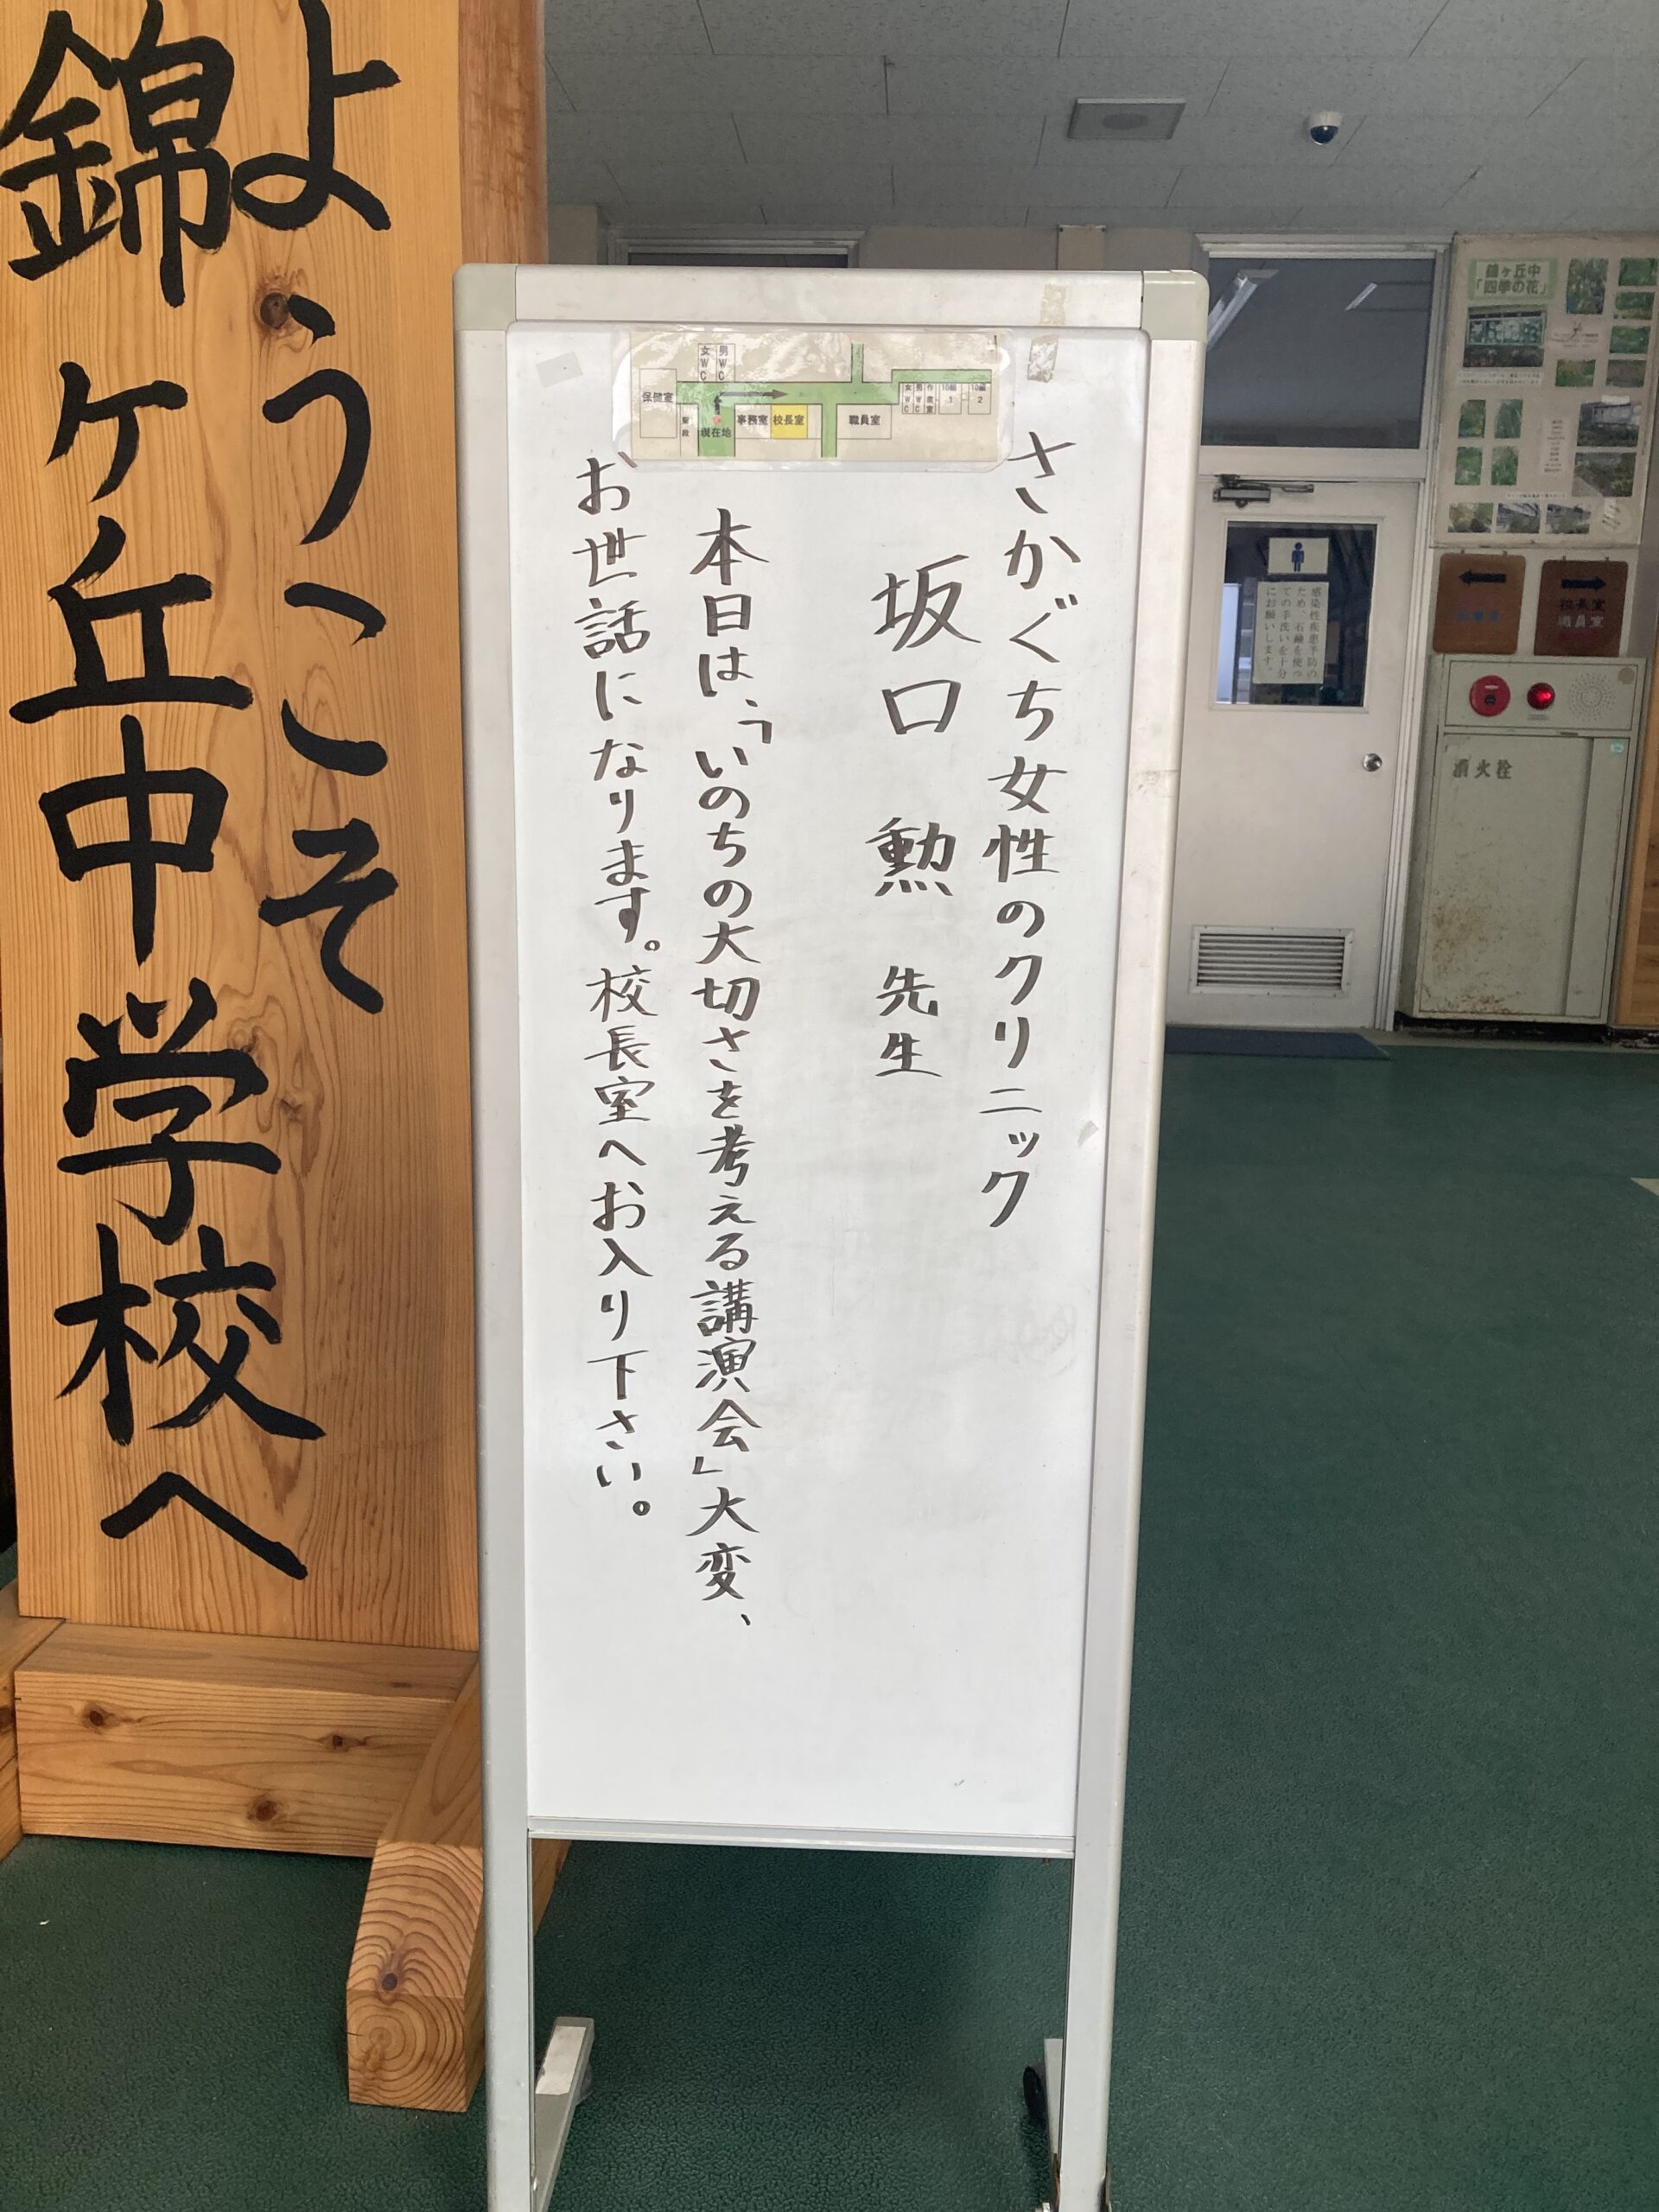 ようこそ
錦ケ丘中学校へ
さかぐち女性のクリニック
坂口 勲 先生
本日は、「いのちの大切さを考える講演会」大変、
お世話になります。校長室へお入り下さい。
女WC
男WC
保健室
階段
現在地
事務室
校長室
職員室
女WC
男WC
錦ケ丘中
「四季の花」
感染性疾患予防の
ため、石鹸を使っ
ての手洗いを十分
にお願いします。
校長室
職員室
消火栓